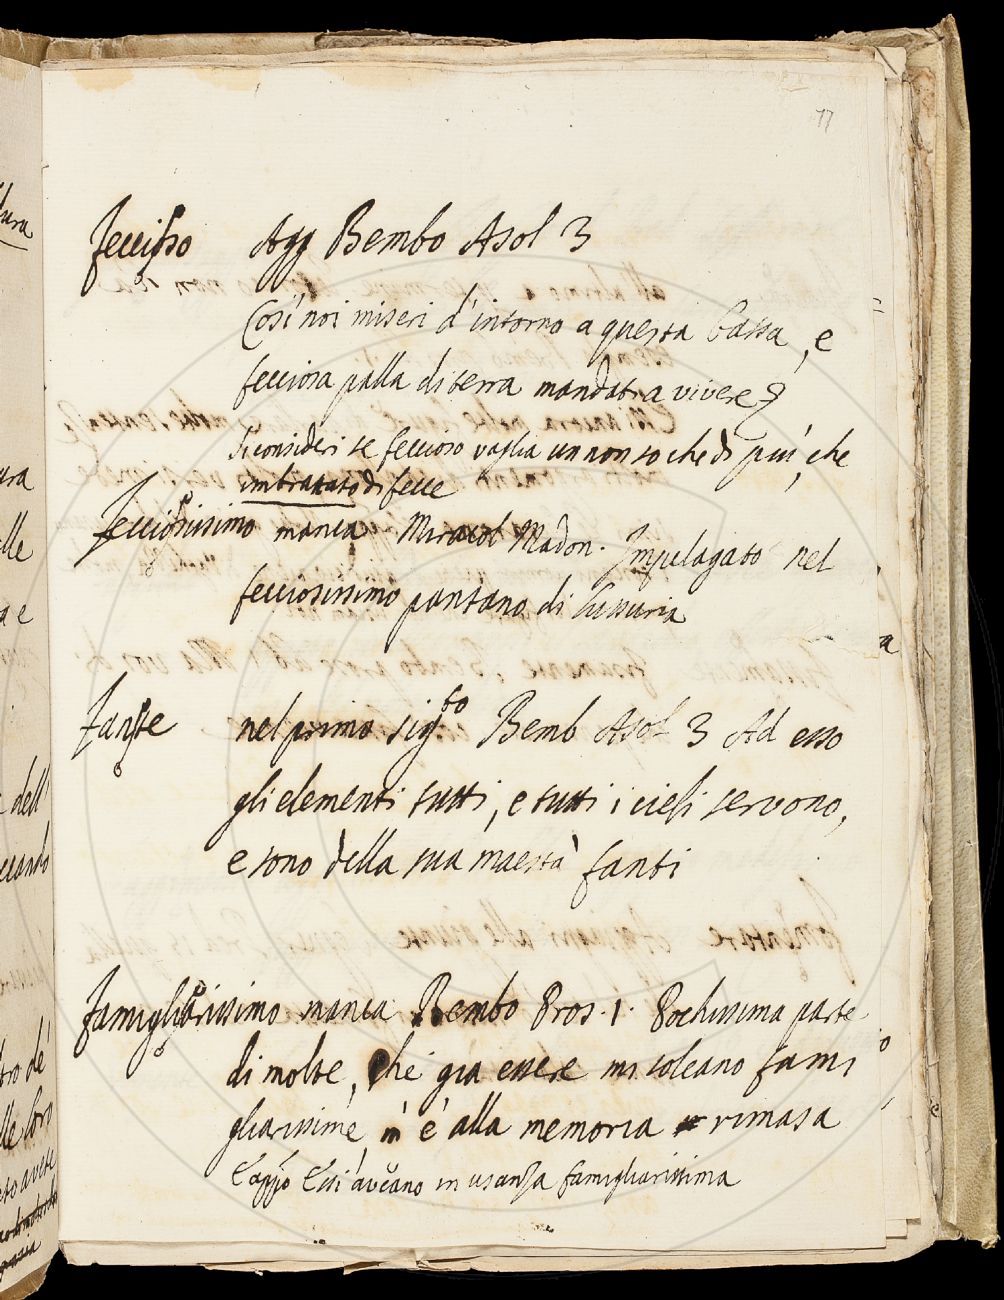 77
Feccioso Agg Bembo Asol 3
Così noi miseri d'intorno a questa bassa, e
fecciosa palla di terra mandati a vivere?
Si consideri se feccioso vaglia un non so che di più, che
imbrattato di fecce
Fecciosissimo manca Miracol Madon. Impelagato nel
fecciosissimo pantano di lussuria
Fante nel primo sig.to Bemb Asol 3 Ad esso
gli elementi tutti, e tutti i cieli servono,
e sono della sua maestà fanti
Famigliarissimo manca Bembo Pros. 1. Pochissima parte
di molte, che gia essere mi soleano fami
gliarissime, m'è alla memoria rimasa
in usanza famigliarissima